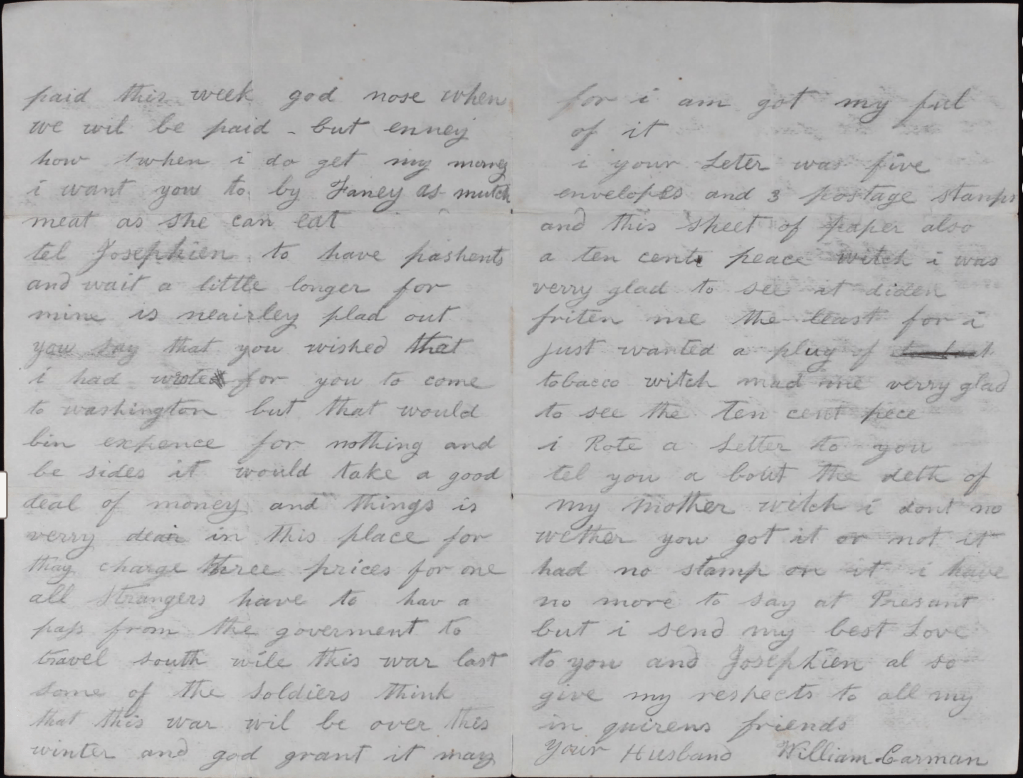 paid this week god nose when
we wil be paid - but enney
how when i do get my money
i want you to by Faney as mutch
meat as she can eat
tel Josephien to have pashents
and wait a little longer for
mine is neairley plad out
you say that you wished that
i had wrote for you to come
to washington but that would
bin expence for nothing and
be sides it would take a good
deal of money and things is
verry dear in this place for
thay charge three prices for one
all strangers have to hav a
pass from the goverment to
travel south wile this war last
some of the soldiers think
that this war wil be over this
winter and god grant it may
for i am got my ful
of it
i your Leter was five
envelopes and 3 postage stamps
and this sheet of paper also
a ten cent peace witch i was
verry glad to see it diden
friten me the least for i
just wanted a plug of
tobacco witch mad me verry glad
to see the ten cent pece
i Rote a Letter to you
tel you a bout the deth of
my Mother witch i dont no
wether you got it or not it
had no stamp on it i have
no more to say at Presant
but i send my best Love
to you and Josephien al so
give my respects to all my
in quirens friends
your Husband William Carman